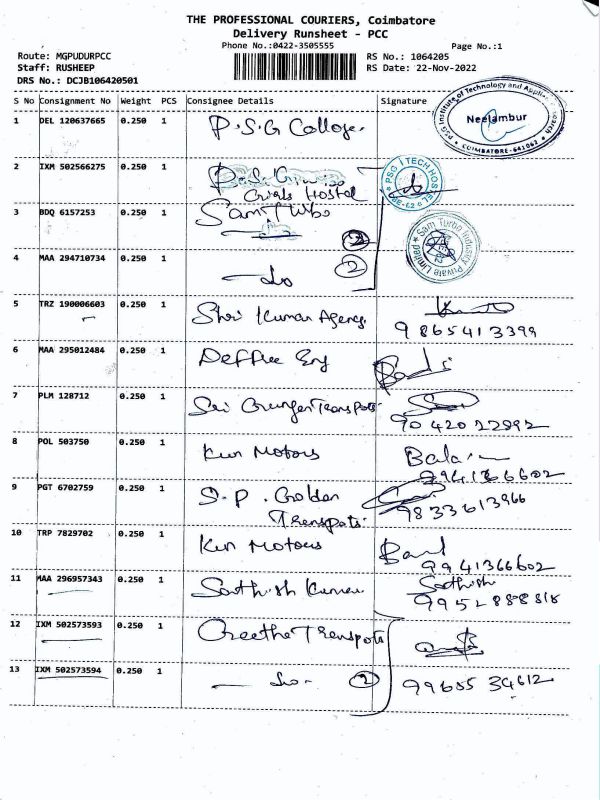 THE PROFESSIONAL COURIERS, Coimbatore
Delivery Runsheet - PCC
Phone No.:0422-3505555 Page No.:1
Route: MGPUDURPCC RS No.: 1064205
Staff: RUSHEEP RS Date: 22-Nov-2022
DRS No.: DCJB106420501
S No Consignment No Weight PCS Consignee Details Signature
PSG Institute of Technology and Applied
Neelambur
COIMBATORE-641062
1 DEL 120637665 0.250 1 P.S.G College
2 IXM 502566275 0.250 1
Girls Hostel
PSG ITECH HOSTEL
3 BDQ 6157253 0.250 1 Sam Turbo
2
Sam Turbo Industry Private Limited
4 MAA 294710734 0.250 1 - do 2
5 TRZ 190006603 0.250 1 Shri Kumar Agency
9865413399
6 MAA 295012484 0.250 1
7 PLM 128712 0.250 1 Sri Transpots
90420 22892
8 POL 503750 0.250 1 Motors Bala
9941366602
9 PGT 6702759 0.250 1 S.P. Golden
Transpots. 9833613966
10 TRP 7829702 0.250 1 Motors
9941366602
11 MAA 296957343 0.250 1 Sathish Kumar Sathish
9952888818
12 IXM 502573593 0.250 1 Transpots
13 IXM 502573594 0.250 1 - do - 2 99655 34612